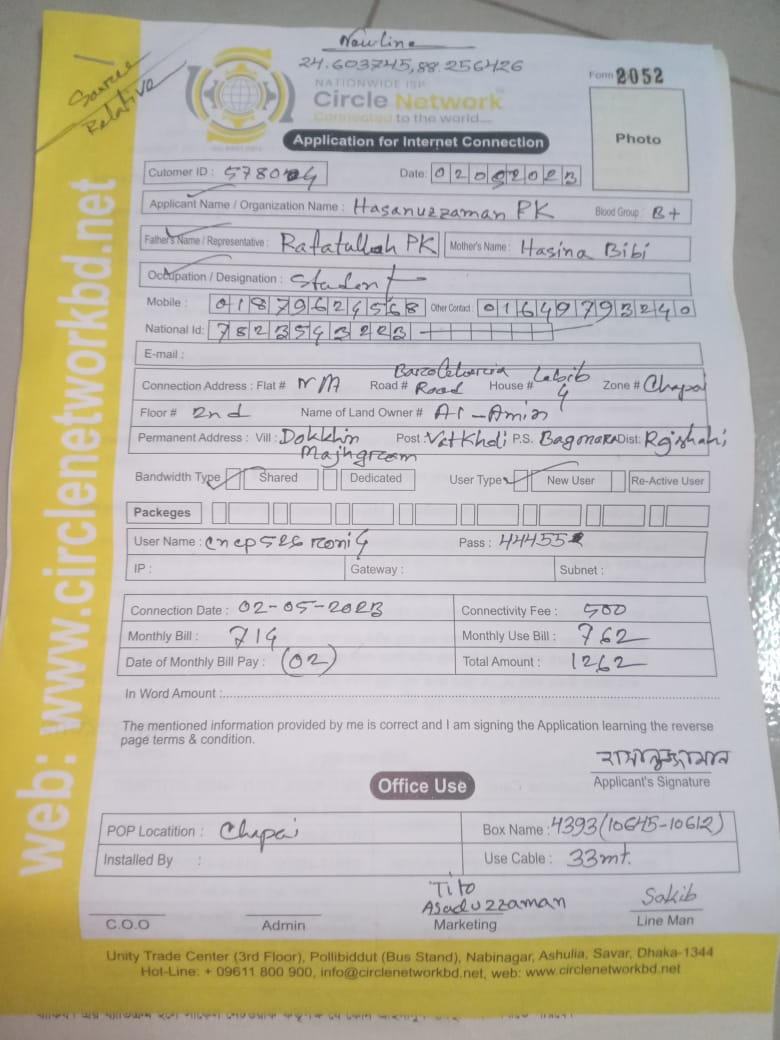 New line
24.603745,88.256426
Source
Relative
NATIONWIDE ISP
Circle Network
Connected to the world....
Form 2052
Photo
Application for Internet Connection
Cutomer ID : 578024 Date: 02052023
Applicant Name / Organization Name : Hasanuzzaman PK Blood Group : B+
Father's Name / Representative : Rafatullah PK Mother's Name : Hasina Bibi
Occupation / Designation : Student
Mobile : 01879624568 Other Contact : 01649793240
National Id: 7823543223
E-mail :
Connection Address : Flat # N/A Road # Road House # Labib Zone # Chapai
Floor # 2nd Name of Land Owner # Al-Amin
Permanent Address : Vill : Dokkhin Majhgram Post : P.S. Dist: Rajshahi
Bandwidth Type Shared Dedicated User Type New User Re-Active User
Packeges
User Name : Pass : 44455
IP : Gateway : Subnet :
Connection Date : 02-05-2023 Connectivity Fee : 500
Monthly Bill : 714 Monthly Use Bill : 762
Date of Monthly Bill Pay : (02) Total Amount : 1262
In Word Amount :
The mentioned information provided by me is correct and I am signing the Application learning the reverse
page terms & condition.
হাসানুজ্জামান
Applicant's Signature
Office Use
POP Locatition : Chapai Box Name : 4393(10645-10612)
Installed By : Use Cable : 33mt.
Tito
Asaduzzaman Sakib
C.O.O Admin Marketing Line Man
Unity Trade Center (3rd Floor), Pollibiddut (Bus Stand), Nabinagar, Ashulia, Savar, Dhaka-1344
Hot-Line: + 09611 800 900, info@circlenetworkbd.net, web: www.circlenetworkbd.net
web: www.circlenetworkbd.net